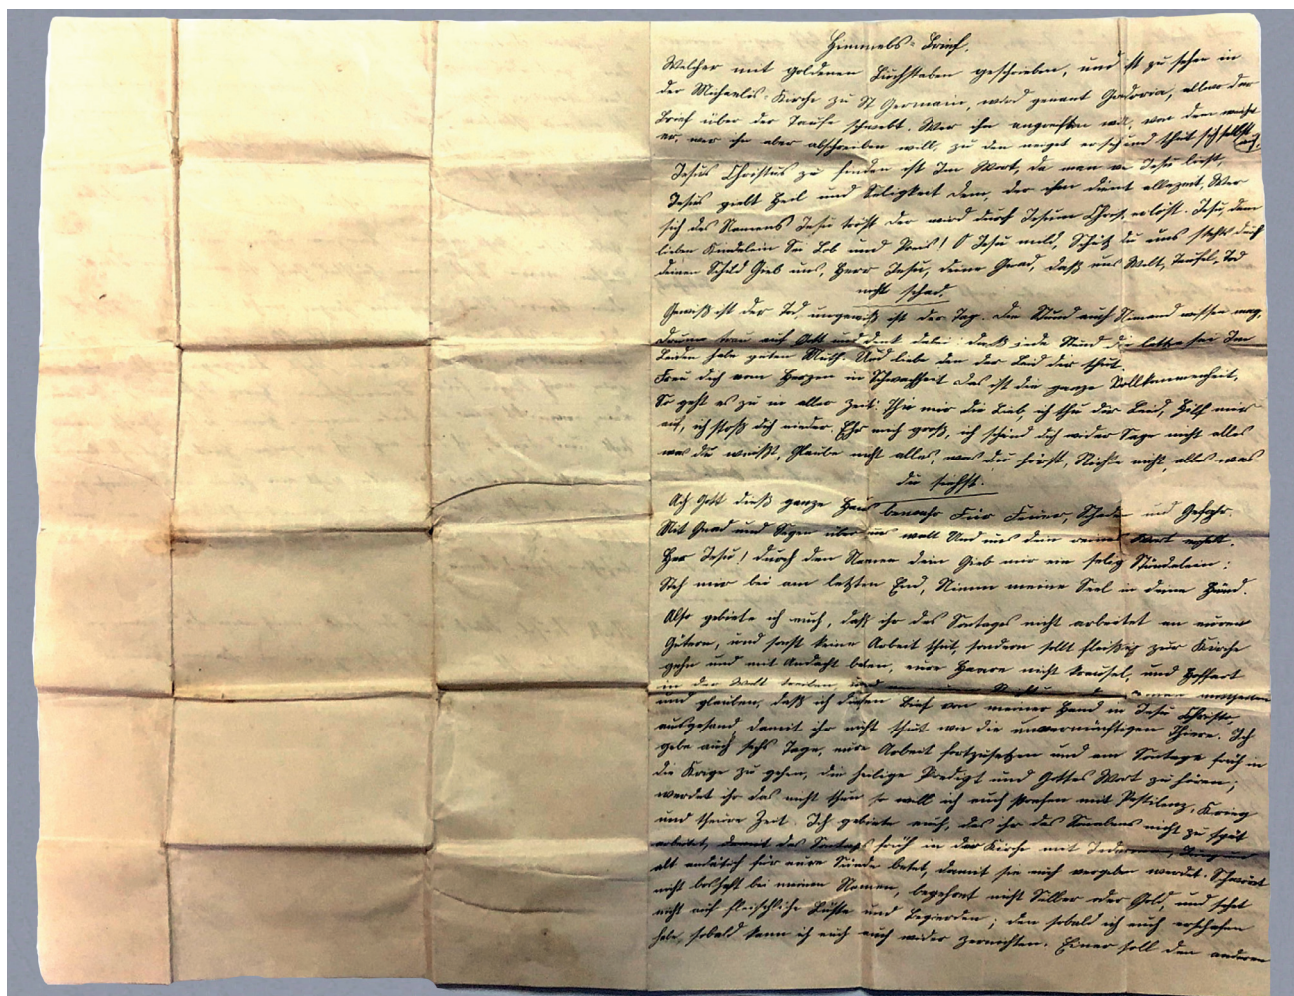 Himmels-Brief.
Welcher mit goldenen Buchstaben geschrieben, und ist zu sehen in
der Michaelis-Kirche zu St Germain, wird genant Gredoria, allwo der
Brief über der Taufe schwebt. Wer ihn angreiffen will, von dem weicht
er, wer ihn aber abschreiben will, zu den neiget er sich und thut sich selbst auf,
Jesus Christus zu finden ist Im Wort, da man von Jesu liest,
Jesus giebt Heil und Seligkeit dem, der ihm dient allezeit, Wer
sich des Namens Jesu tröst der wird durch Jesum Christ, erlöst. Jesu, dem
lieben Kindelein Sei Lob und Preis! O Jesu mild, Schütz du uns stehts durch
deinen Schild Gieb uns, Herr Jesu, deine Gnad, daß uns Welt, Teufel, Tod
nicht schad.
Gewiß ist der Tod, ungewiß ist der Tag. Die Stund auch Niemand wissen mag,
Drum trau auf Gott und denk dabei: daß jede Stund die letzte sei Im
Leiden habe guten Muth. Und liebe den der Leid dir thut.
Freu dich vom Herzen in Schwachheit das ist die ganze Vollkommenheit,
So geht es zu in aller Zeit: Thu mir die Lieb, ich thu dir Leid, Hilf mir
auf, ich stoß dich nieder. Ehr mich groß, ich schind dich wider Sage nicht alles
was du weißt, Glaube nicht alles, was du hörst, Richte nicht, alles was
du siehst.
Ach Gott dieß ganze Haus bewahr Für Feuer, Schaden und Gefahr.
Mit Gnad und Segen über uns walt Und uns dein reines Wort erhalt.
Herr Jesu! durch den Namen dein Gieb mir ein selig Stündelein:
Steh mir bei am letzten End, Nimm meine Seel in deine Händ.
Also gebiete ich euch, daß ihr des Sontages nicht arbeitet an euren
Gütern, und sonst keine Arbeit thut, sondern sollt fleißig zur Kirche
gehn und mit Andacht beten, eure Haare nicht kreusel, und Hoffart
in der Welt treiben, und
und glauben, daß ich diesen Brief von meiner Hand in Jesu Christo,
ausgesand damit ihr nicht thut wie die unvernünftigen Thiere. Ich
gebe auch sechs Tage, eure Arbeit fortzusetzen und am Sontage früh in
die Kirge zu gehen, die heilige Predigt und Gottes Wort zu hören;
werdet ihr das nicht thun so will ich euch strafen mit Pestilenz, Krieg
und theure Zeit. Ich gebiete euch, das ihr des Sonabens nicht zu spät
arbeitet, damit des Sontags früh in der Kirche mit Jederman, Jung und
alt andätich für eure Sünde betet, damit sie euch vergeben werdet. Schwöret
nicht boshaft bei meinen Namen, begehret nicht Silber oder Gold, und sehet
nicht auf fleischliche Lüste und Begierden; den sobald ich euch erschafen
habe, sobald kann ich euch auch wider zernichten. Einer soll den anderen